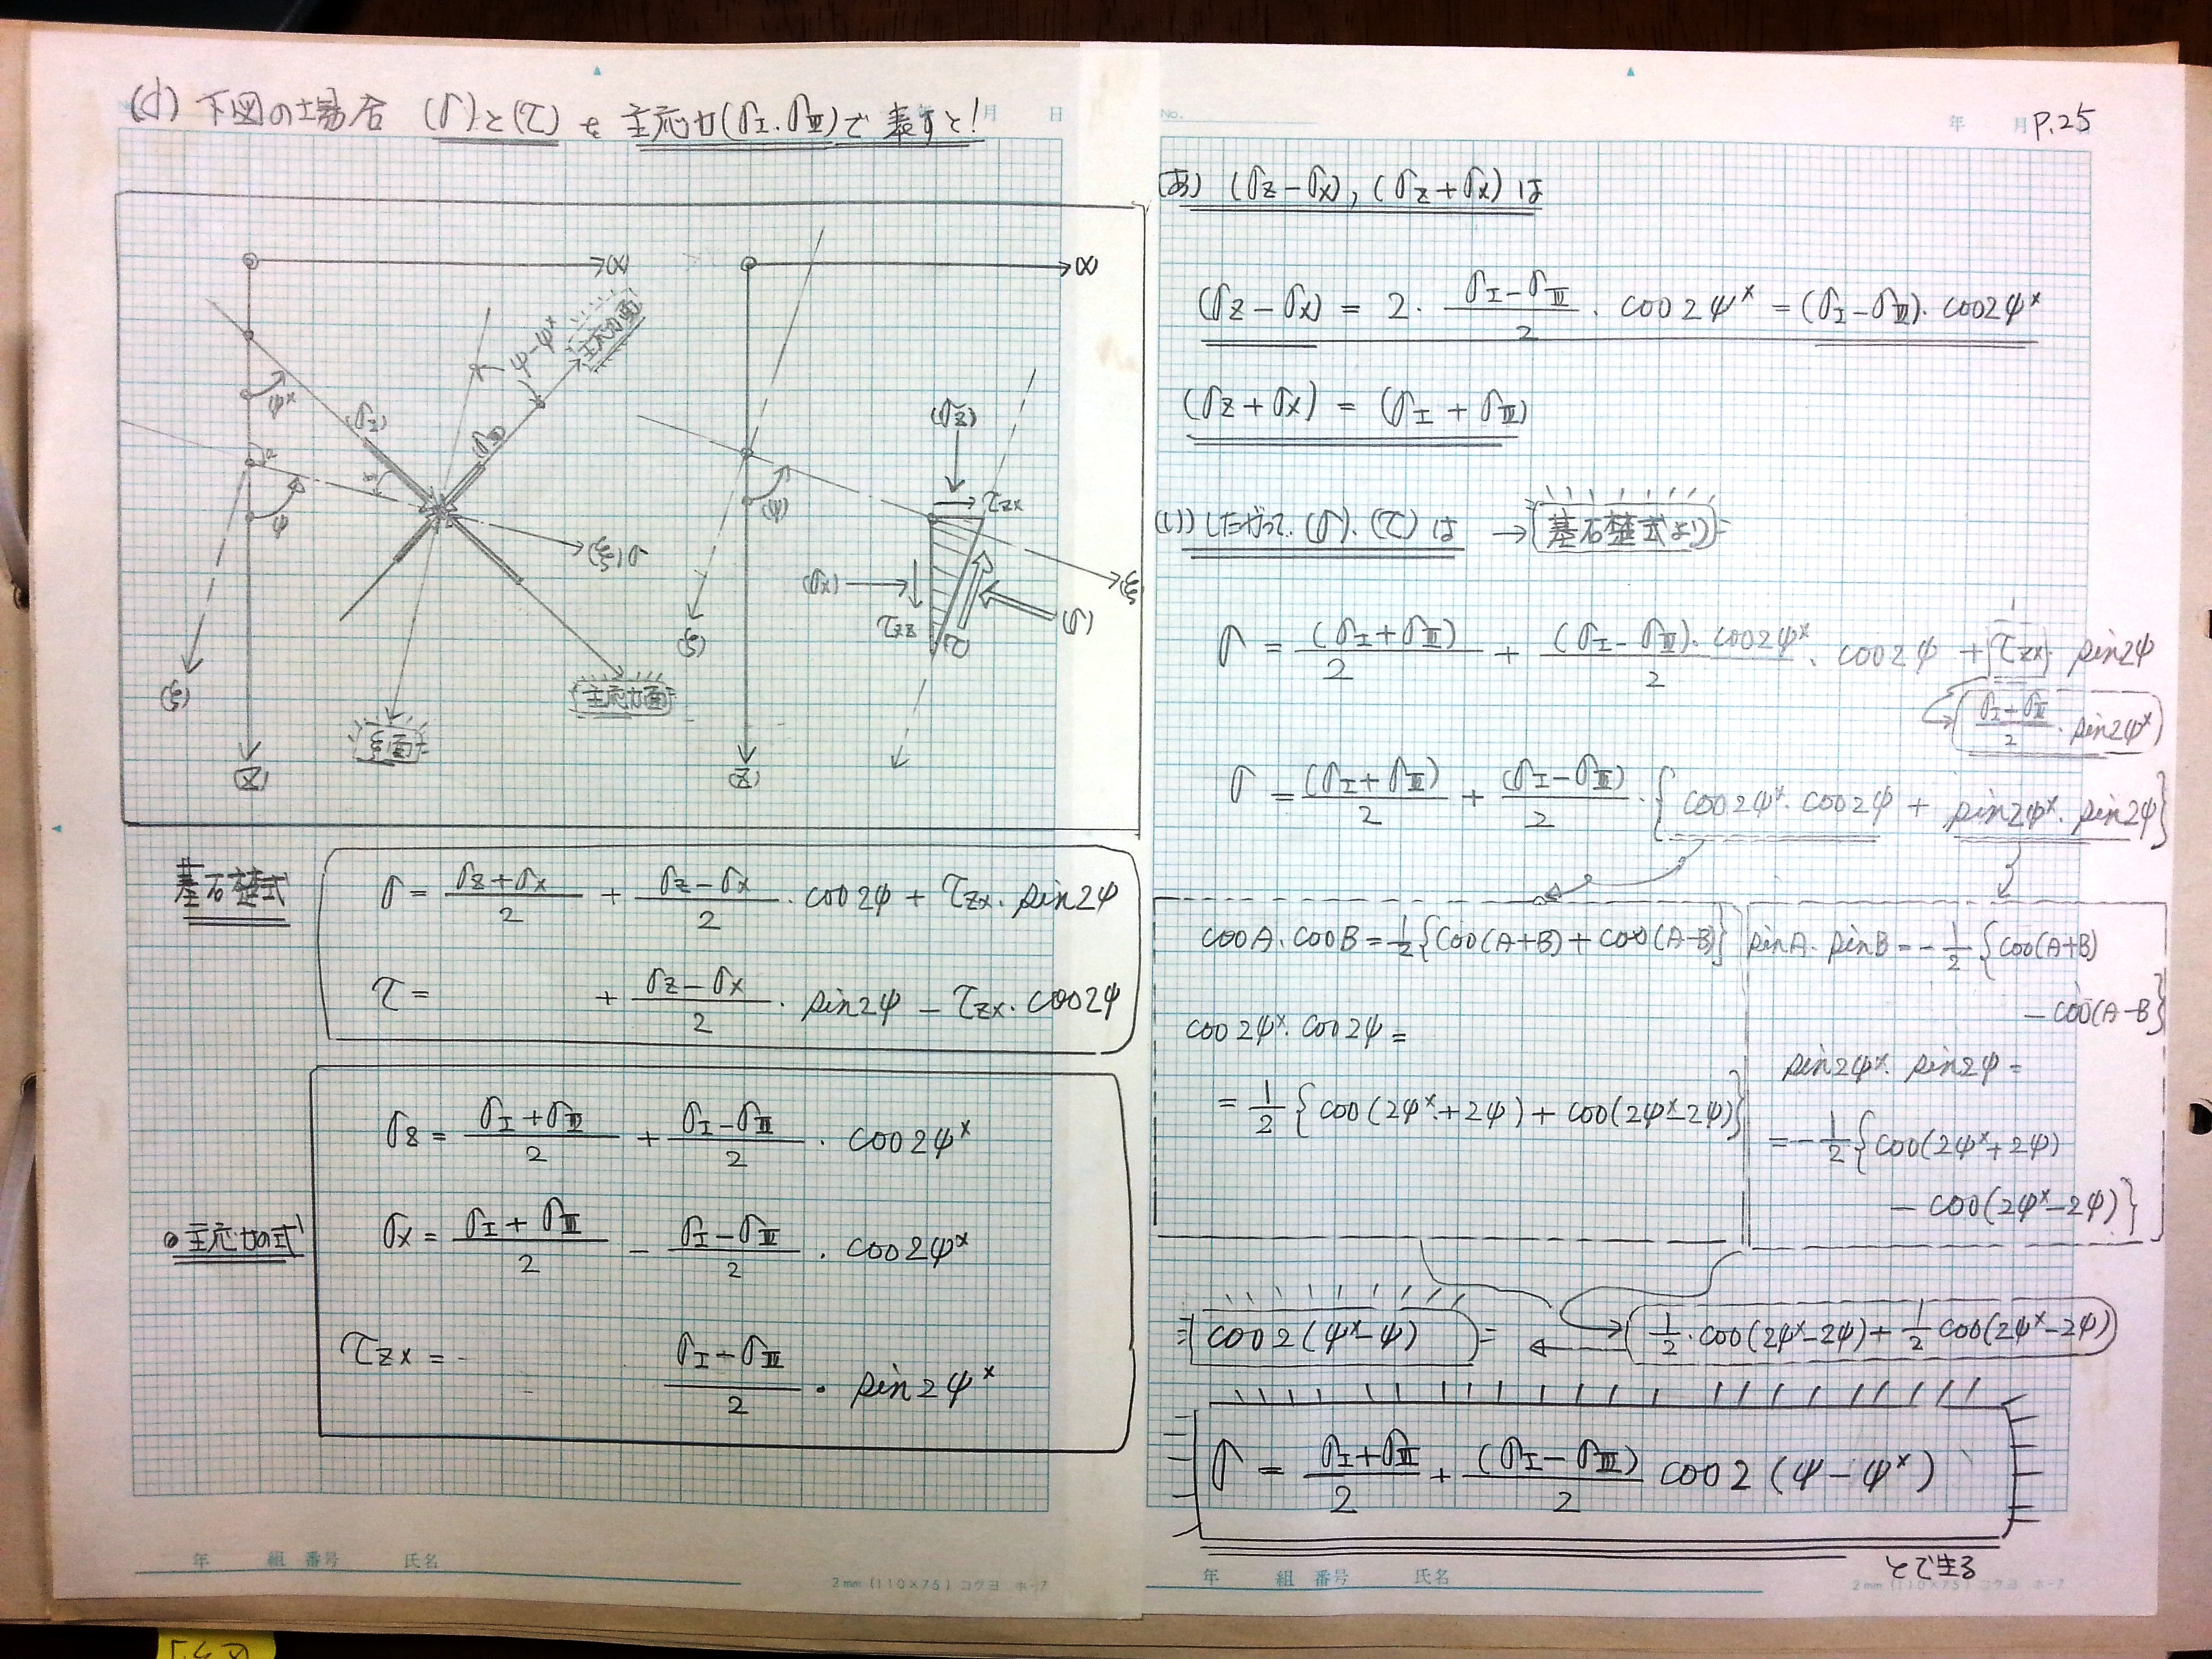 (d) 下図の場合 (σ)と(τ)を主応力(σI.σIII)で表すと!
年 月 日
x
x
ψ-ψ*
主応力面
ψ*
(σI)
(σIII)
α
α
ψ
(ξ)σ
(ζ)
主応力面
ξ面
(Z)
(σz)
τzx
(ψ)
(σx)
τxz
(τ)
(σ)
(ξ)
(ζ)
(Z)
基礎式
σ = σz+σx/2 + σz-σx/2 · cos2ψ + τzx · sin2ψ
τ = + σz-σx/2 · sin2ψ - τzx · cos2ψ
●主応力の式
σz = σI+σIII/2 + σI-σIII/2 · cos2ψ*
σx = σI+σIII/2 - σI-σIII/2 · cos2ψ*
τzx = σI-σIII/2 · sin2ψ*
年 組 番号 氏名
2mm (110×75) コクヨ ホ-7
No.
年 月 P.25
(あ) (σz-σx), (σz+σx) は
(σz-σx) = 2 · σI-σIII/2 · cos2ψ* = (σI-σIII) · cos2ψ*
(σz+σx) = (σI+σIII)
(い) したがって.(σ).(τ)は → 基礎式より
σ = (σI+σIII)/2 + (σI-σIII)·cos2ψ*/2 · cos2ψ + τzx · sin2ψ
σI-σIII/2 · sin2ψ*
σ = (σI+σIII)/2 + (σI-σIII)/2 · {cos2ψ* · cos2ψ + sin2ψ* · sin2ψ}
cosA · cosB = 1/2{cos(A+B) + cos(A-B)}
cos2ψ* · cos2ψ =
= 1/2{cos(2ψ*+2ψ) + cos(2ψ*-2ψ)}
sinA · sinB = -1/2{cos(A+B)
- cos(A-B)}
sin2ψ* · sin2ψ =
= -1/2{cos(2ψ*+2ψ)
- cos(2ψ*-2ψ)}
cos2(ψ*-ψ) ← 1/2 · cos(2ψ*-2ψ) + 1/2 cos(2ψ*-2ψ)
σ = σI+σIII/2 + (σI-σIII)/2 cos2(ψ-ψ*)
とできる
年 組 番号 氏名
2mm (110×75) コクヨ ホ-7